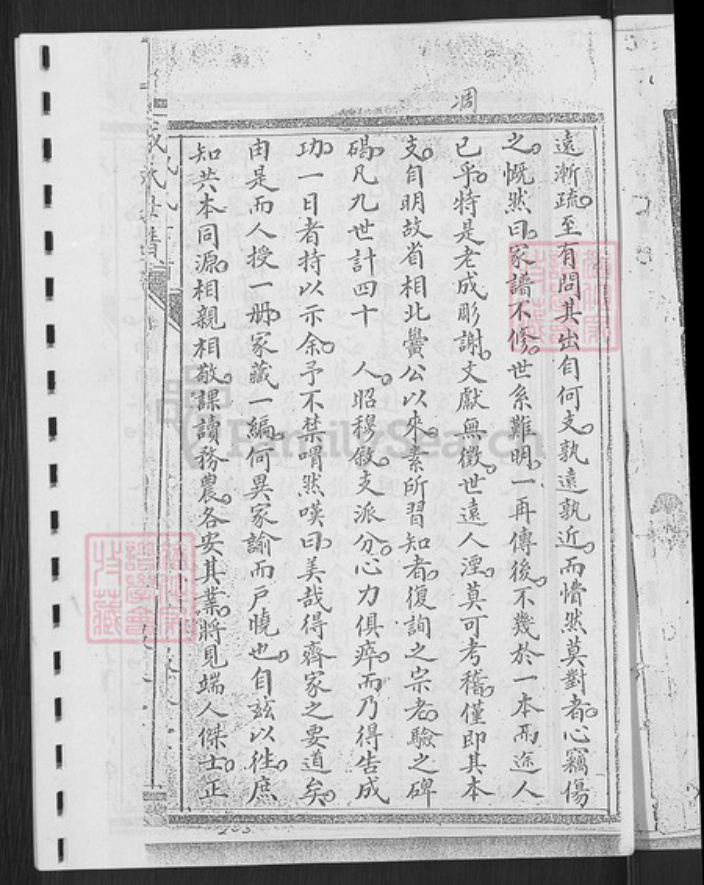 凋
遠漸疏至有問其出自何支孰遠孰近而懵然莫對者心竊傷
之慨然曰家譜不修世系難明一再傳後不幾於一本而途人
已乎特是老成彫謝文獻無徵世遠人湮莫可考稽僅即其本
支自明故省相北黌公以來素所習知者復詢之宗老驗之碑
碣凡九世計四十 人昭穆敘支派分心力俱瘁而乃得告成
功一日者持以示余予不禁喟然嘆曰美哉得齊家之要道矣
由是而人授一册家藏一編何異家諭而戶曉也自茲以往庶
知共本同源相親相敬課讀務農各安其業將見端人傑士正
FamilySearch